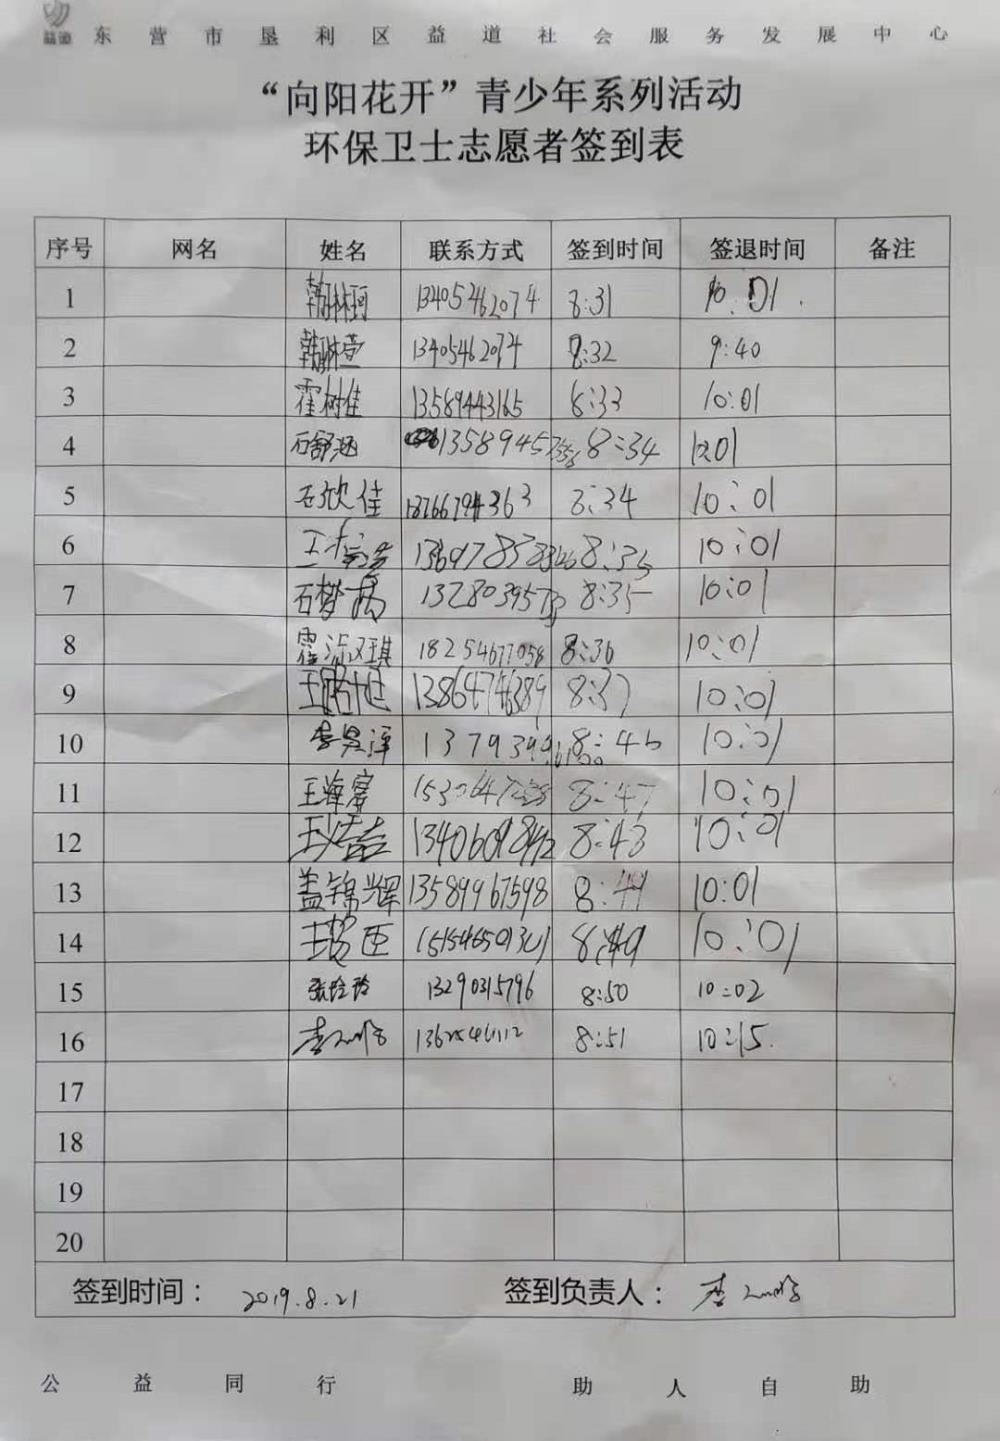 益道 东营市垦利区益道社会服务发展中心
“向阳花开”青少年系列活动
环保卫士志愿者签到表
序号 网名 姓名 联系方式 签到时间 签退时间 备注
1 韩琳珂 13405462074 8:31 10:01
2 韩琳萱 13405462074 8:32 9:40
3 霍树佳 13589443165 8:33 10:01
4 石舒涵 8:34 10:01
5 石欣佳 18766794363 8:34 10:01
6 8:35 10:01
7 石梦 8:35 10:01
8 霍 琪 18254677058 8:36 10:01
9 13864746389 8:37 10:01
10 李昊泽 8:46 10:01
11 王海 8:47 10:01
12 8:48 10:01
13 盖锦辉 13589967598 8:49 10:01
14 8:49 10:01
15 张玲玲 13290315796 8:50 10:02
16 李 8:51 10:15
17
18
19
20
签到时间： 2019.8.21 签到负责人： 李
公益同行 助人自助